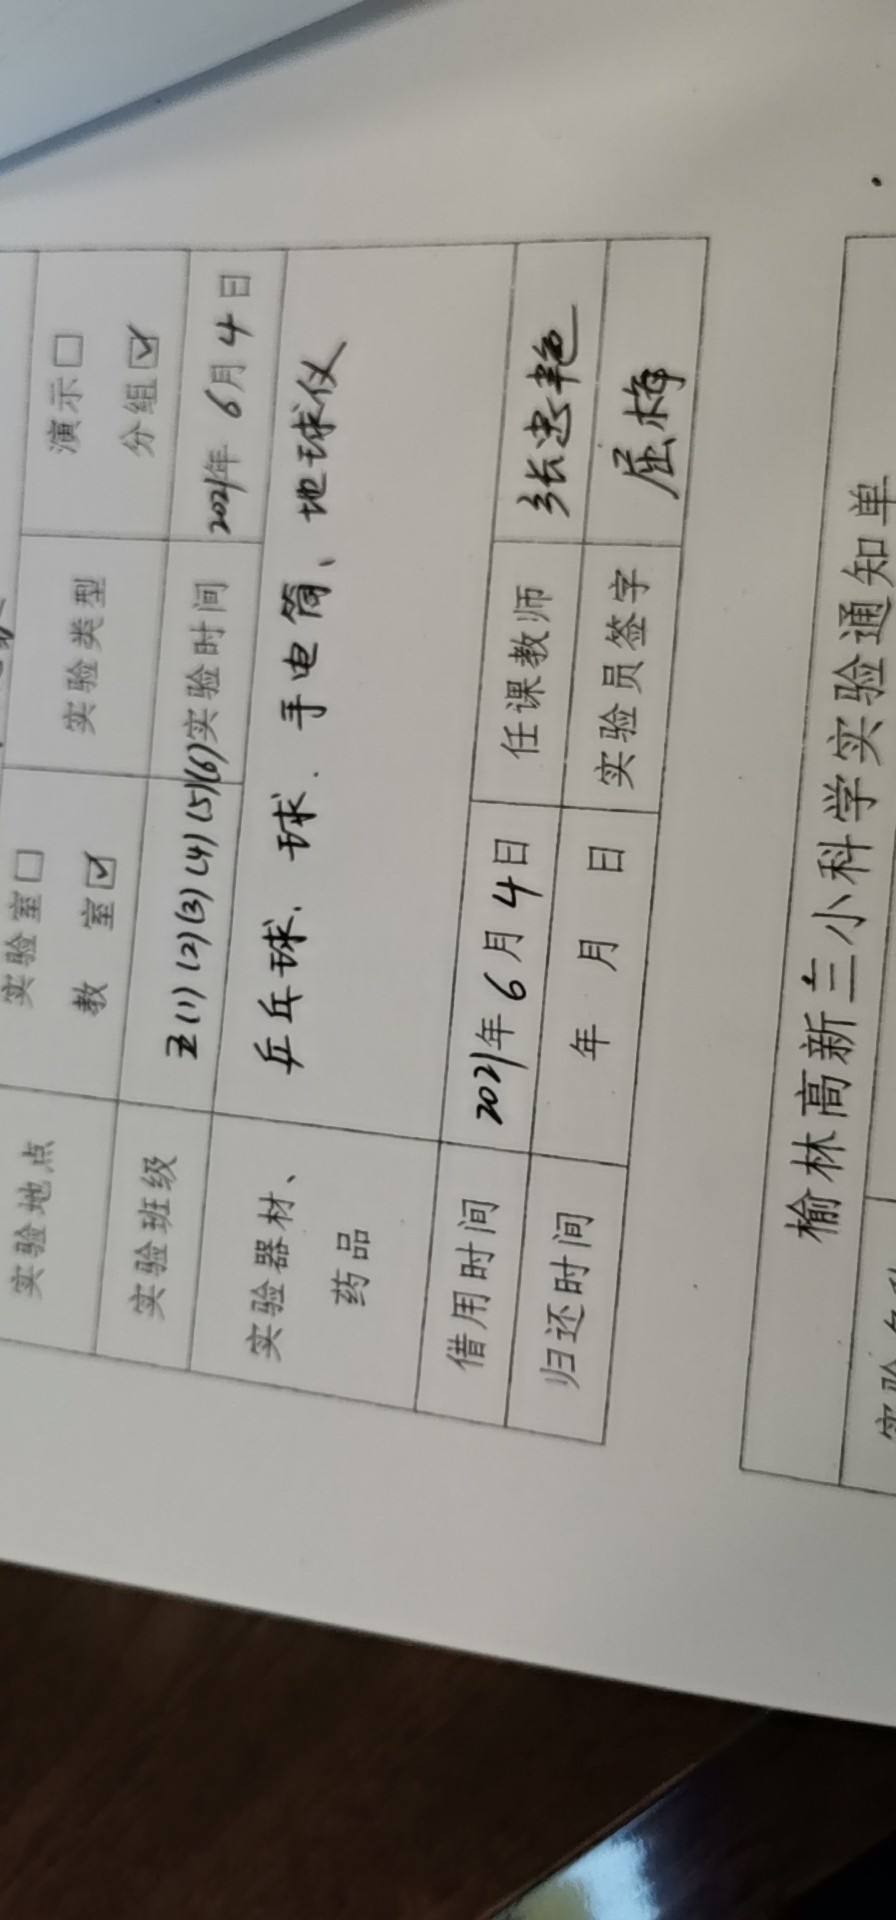 实验地点 实验室□ 实验类型 演示□
教 室☑ 分组☑
实验班级 五(1)(2)(3)(4)(5)(6) 实验时间 2021年6月4日
实验器材、 乒乓球、球、手电筒、地球仪
药品
借用时间 2021年6月4日 任课教师 张忠艳
归还时间 年 月 日 实验员签字 屈梅
榆林高新三小科学实验通知单